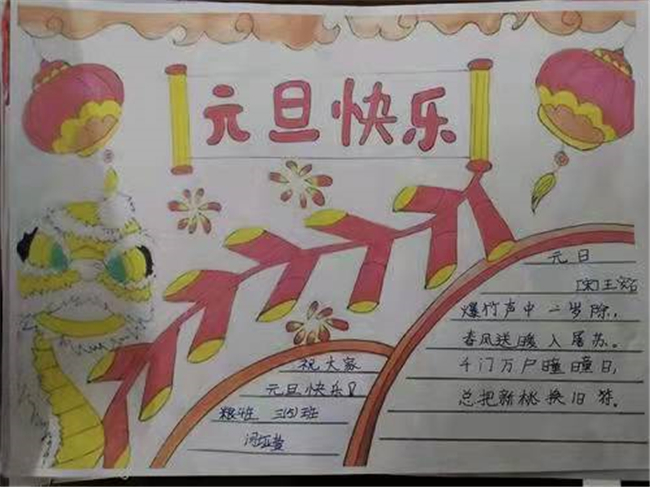 元旦快乐
元日
[宋]王安石
爆竹声中一岁除,
春风送暖入屠苏。
千门万户曈曈日,
总把新桃换旧符。
祝大家
元旦快乐!
三(5)班